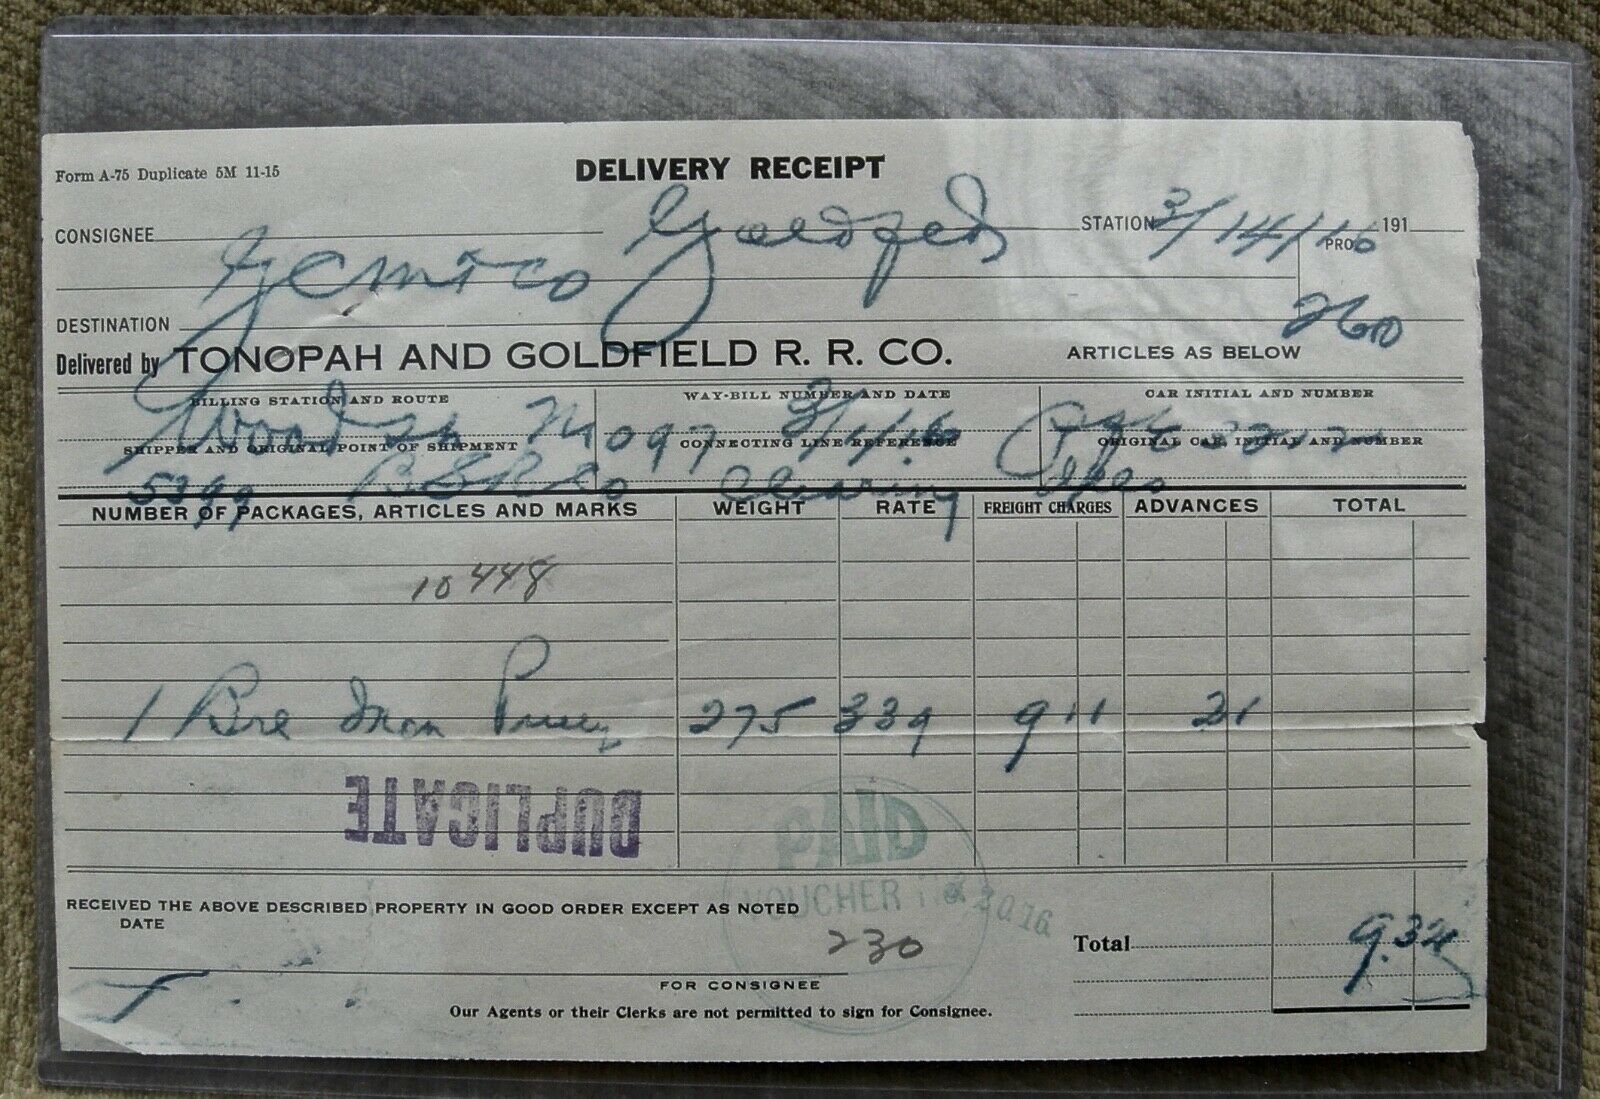 Form A-75 Duplicate 5M 11-15
DELIVERY RECEIPT
CONSIGNEE STATION 3/14/16 191
PRO
260
DESTINATION
Delivered by TONOPAH AND GOLDFIELD R. R. CO. ARTICLES AS BELOW
BILLING STATION AND ROUTE WAY-BILL NUMBER AND DATE CAR INITIAL AND NUMBER
Mo 97 3/1/16
SHIPPER AND ORIGINAL POINT OF SHIPMENT CONNECTING LINE REFERENCE ORIGINAL CAR INITIAL AND NUMBER
5399 Clearing Ills
NUMBER OF PACKAGES, ARTICLES AND MARKS WEIGHT RATE FREIGHT CHARGES ADVANCES TOTAL
10448
1 Iron 275 339 9 11 21
DUPLICATE
PAID
VOUCHER
RECEIVED THE ABOVE DESCRIBED PROPERTY IN GOOD ORDER EXCEPT AS NOTED
DATE
230
Total 9.32
FOR CONSIGNEE
Our Agents or their Clerks are not permitted to sign for Consignee.